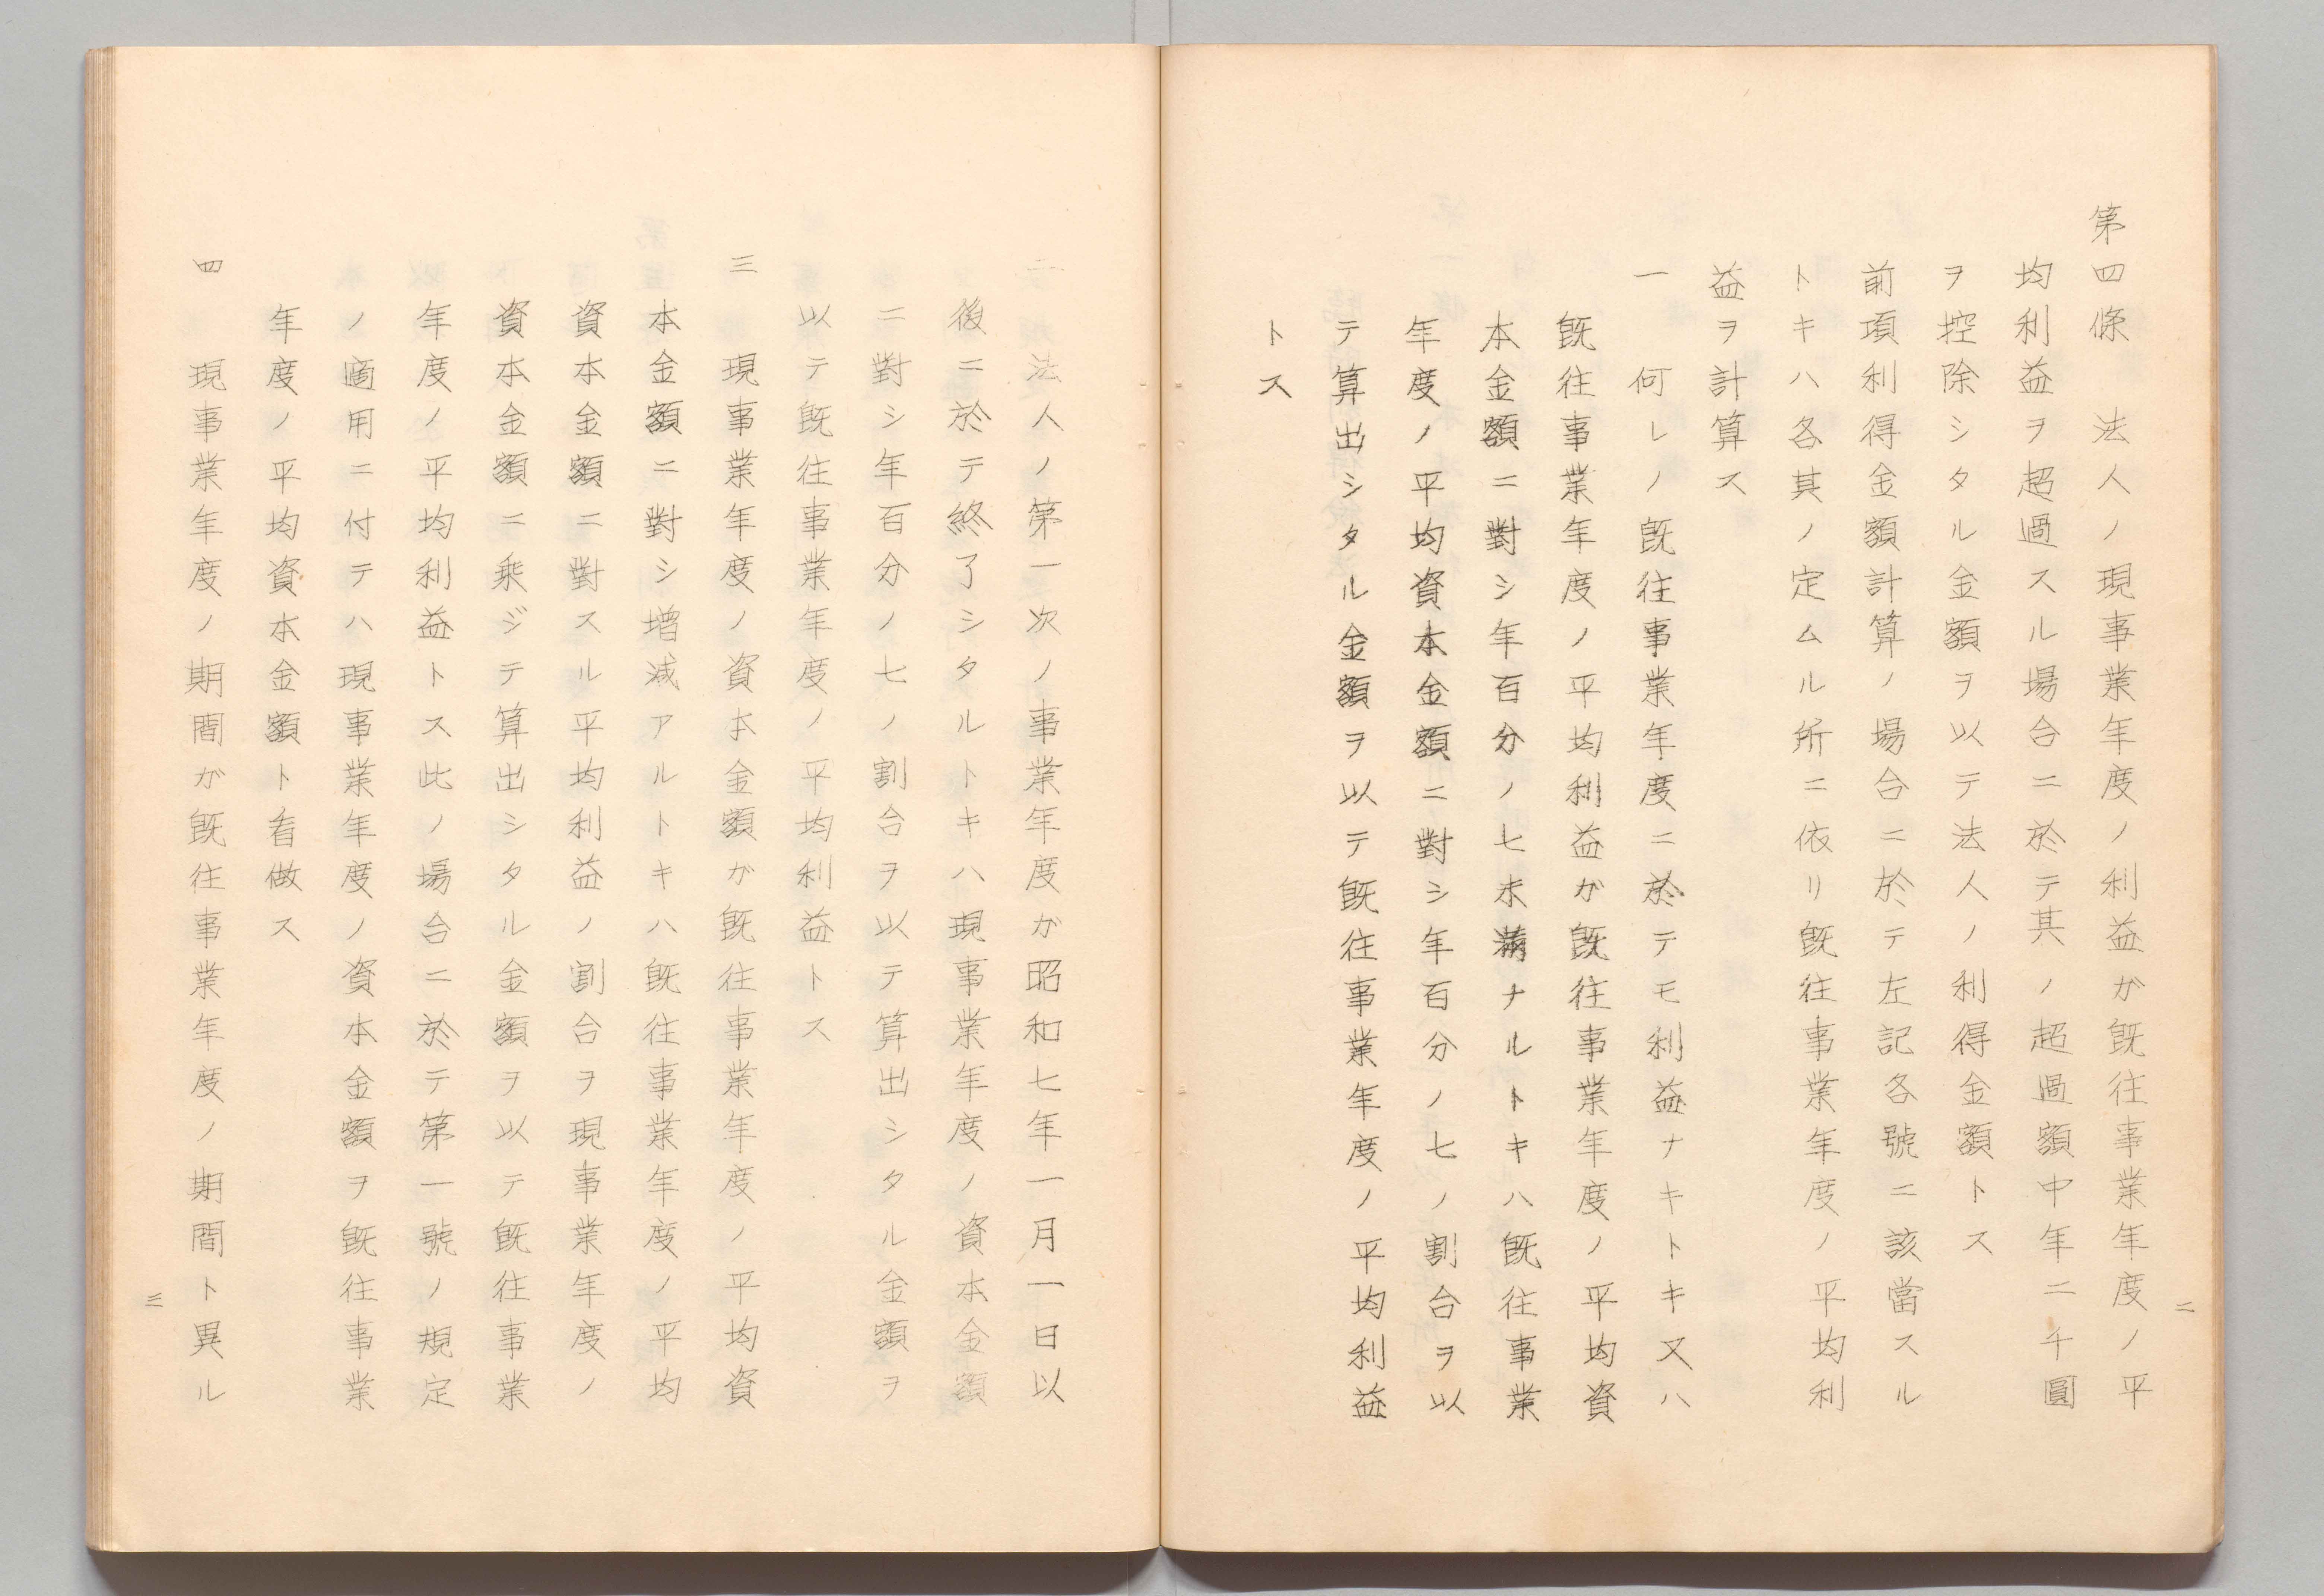 第四條　法人ノ現事業年度ノ利益が既往事業年度ノ平
均利益ヲ超過スル場合ニ於テ其ノ超過額中年二千圓
ヲ控除シタル金額ヲ以テ法人ノ利得金額トス
前項利得金額計算ノ場合ニ於テ左記各號ニ該當スル
トキハ各其ノ定ムル所ニ依リ既往事業年度ノ平均利
益ヲ計算ス
一　何レノ既往事業年度ニ於テモ利益ナキトキ又ハ
既往事業年度ノ平均利益が既往事業年度ノ平均資
本金額ニ對シ年百分ノ七未滿ナルトキハ既往事業
年度ノ平均資本金額ニ對シ年百分ノ七ノ割合ヲ以
テ算出シタル金額ヲ以テ既往事業年度ノ平均利益
トス
二
二　法人ノ第一次ノ事業年度が昭和七年一月一日以
後ニ於テ終了シタルトキハ現事業年度ノ資本金額
ニ對シ年百分ノ七ノ割合ヲ以テ算出シタル金額ヲ
以テ既往事業年度ノ平均利益トス
三　現事業年度ノ資本金額が既往事業年度ノ平均資
本金額ニ對シ增減アルトキハ既往事業年度ノ平均
資本金額ニ對スル平均利益ノ割合ヲ現事業年度ノ
資本金額ニ乘ジテ算出シタル金額ヲ以テ既往事業
年度ノ平均利益トス此ノ場合ニ於テ第一號ノ規定
ノ適用ニ付テハ現事業年度ノ資本金額ヲ既往事業
年度ノ平均資本金額ト看做ス
四　現事業年度ノ期間が既往事業年度ノ期間ト異ル
三